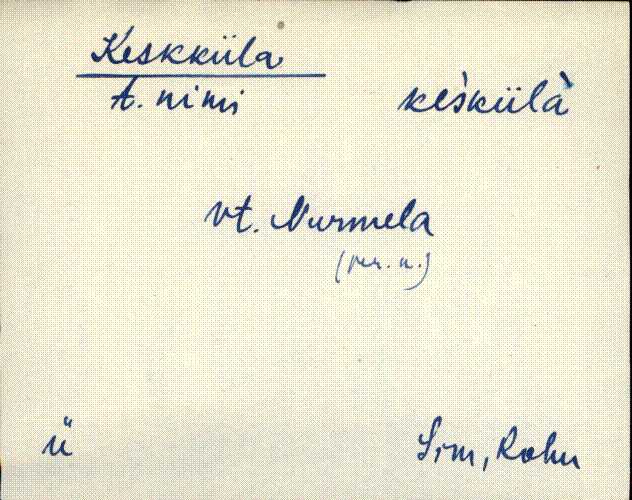 Keskküla
t. nimi
kes̀külà
vt. Nurmela
(per. n.)
ü
Sim, Rahu